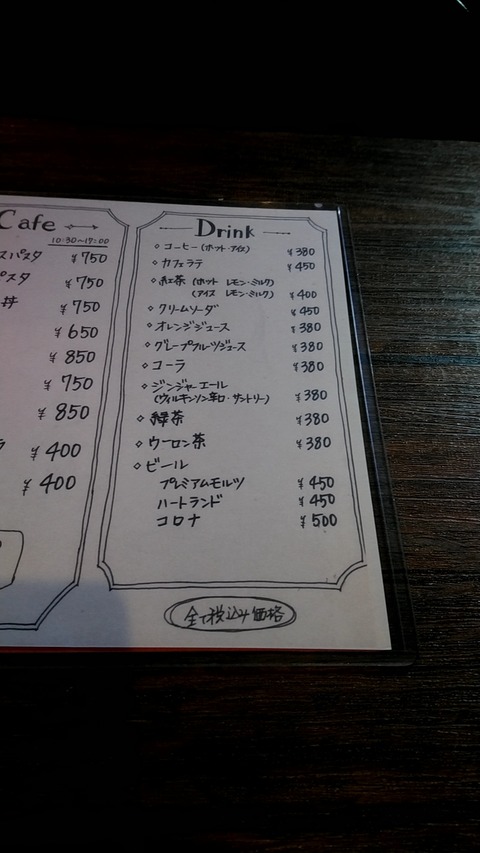 Cafe
10:30~17:00
スパスタ ¥750
パスタ ¥750
丼 ¥750
¥650
¥850
¥750
¥850
¥400
¥400
Drink
◇コーヒー(ホット・アイス) ¥380
◇カフェラテ ¥450
◇紅茶 (ホット レモン・ミルク)
(アイス レモン・ミルク) ¥400
◇クリームソーダ ¥450
◇オレンジジュース ¥380
◇グレープフルーツジュース ¥380
◇コーラ ¥380
◇ジンジャーエール
(ウィルキンソン辛口・サントリー) ¥380
◇緑茶 ¥380
◇ウーロン茶 ¥380
◇ビール
プレミアムモルツ ¥450
ハートランド ¥450
コロナ ¥500
全て税込み価格